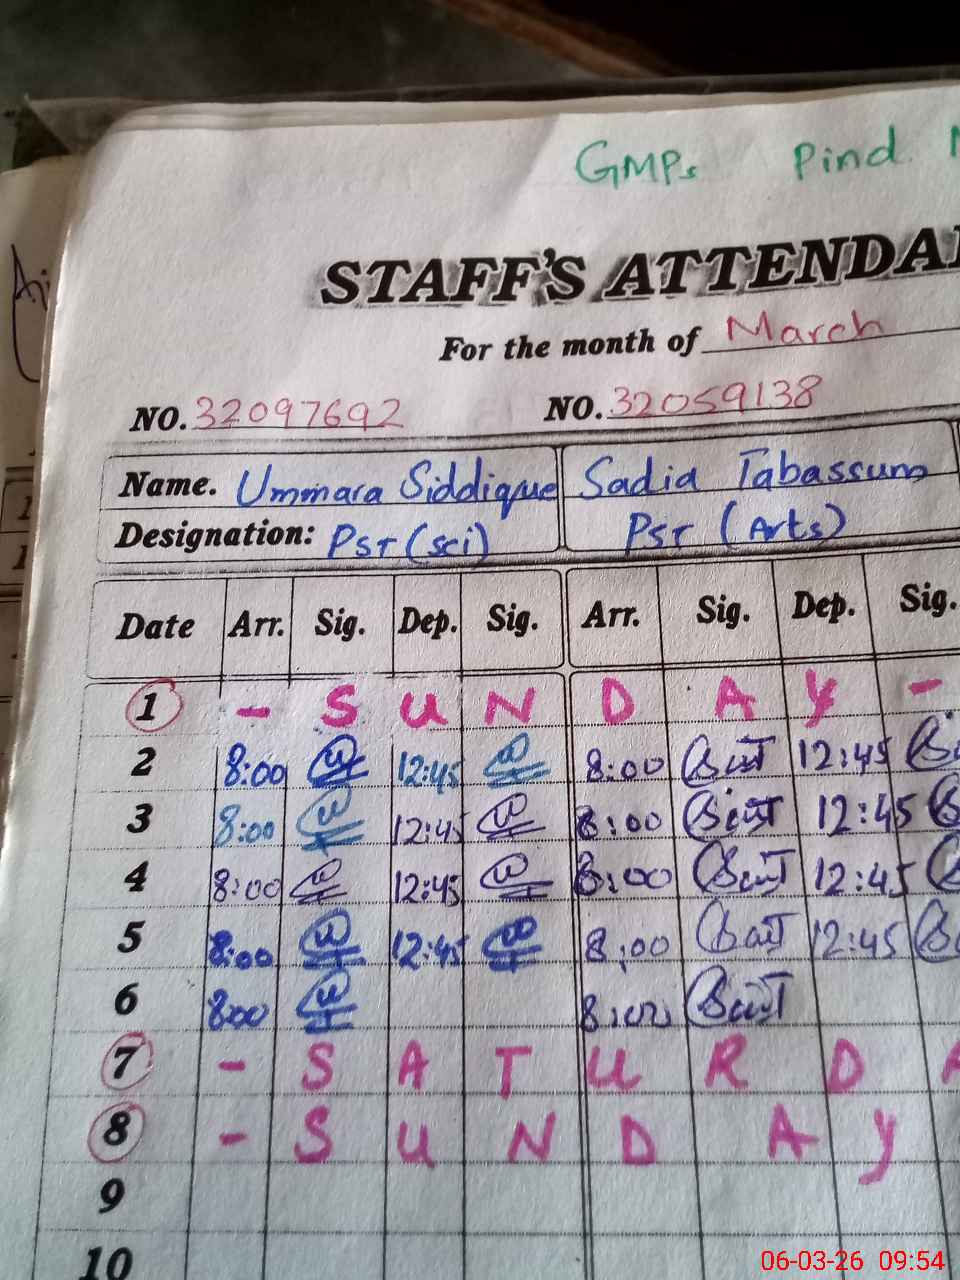 GMPs Pind
STAFF'S ATTENDA
For the month of March
NO. 32097692 NO. 32059138
Name. Ummara Siddique Sadia Tabassum
Designation: PST (sci) PST (Arts)
Date Arr. Sig. Dep. Sig. Arr. Sig. Dep. Sig.
1 - S U N D A Y -
2 8:00 12:45 8:00 12:45
3 8:00 12:45 8:00 12:45
4 8:00 12:45 8:00 12:45
5 8:00 12:45 8:00 12:45
6 8:00 8:00
7 - S A T U R D A
8 - S U N D A Y
9
10
06-03-26 09:54